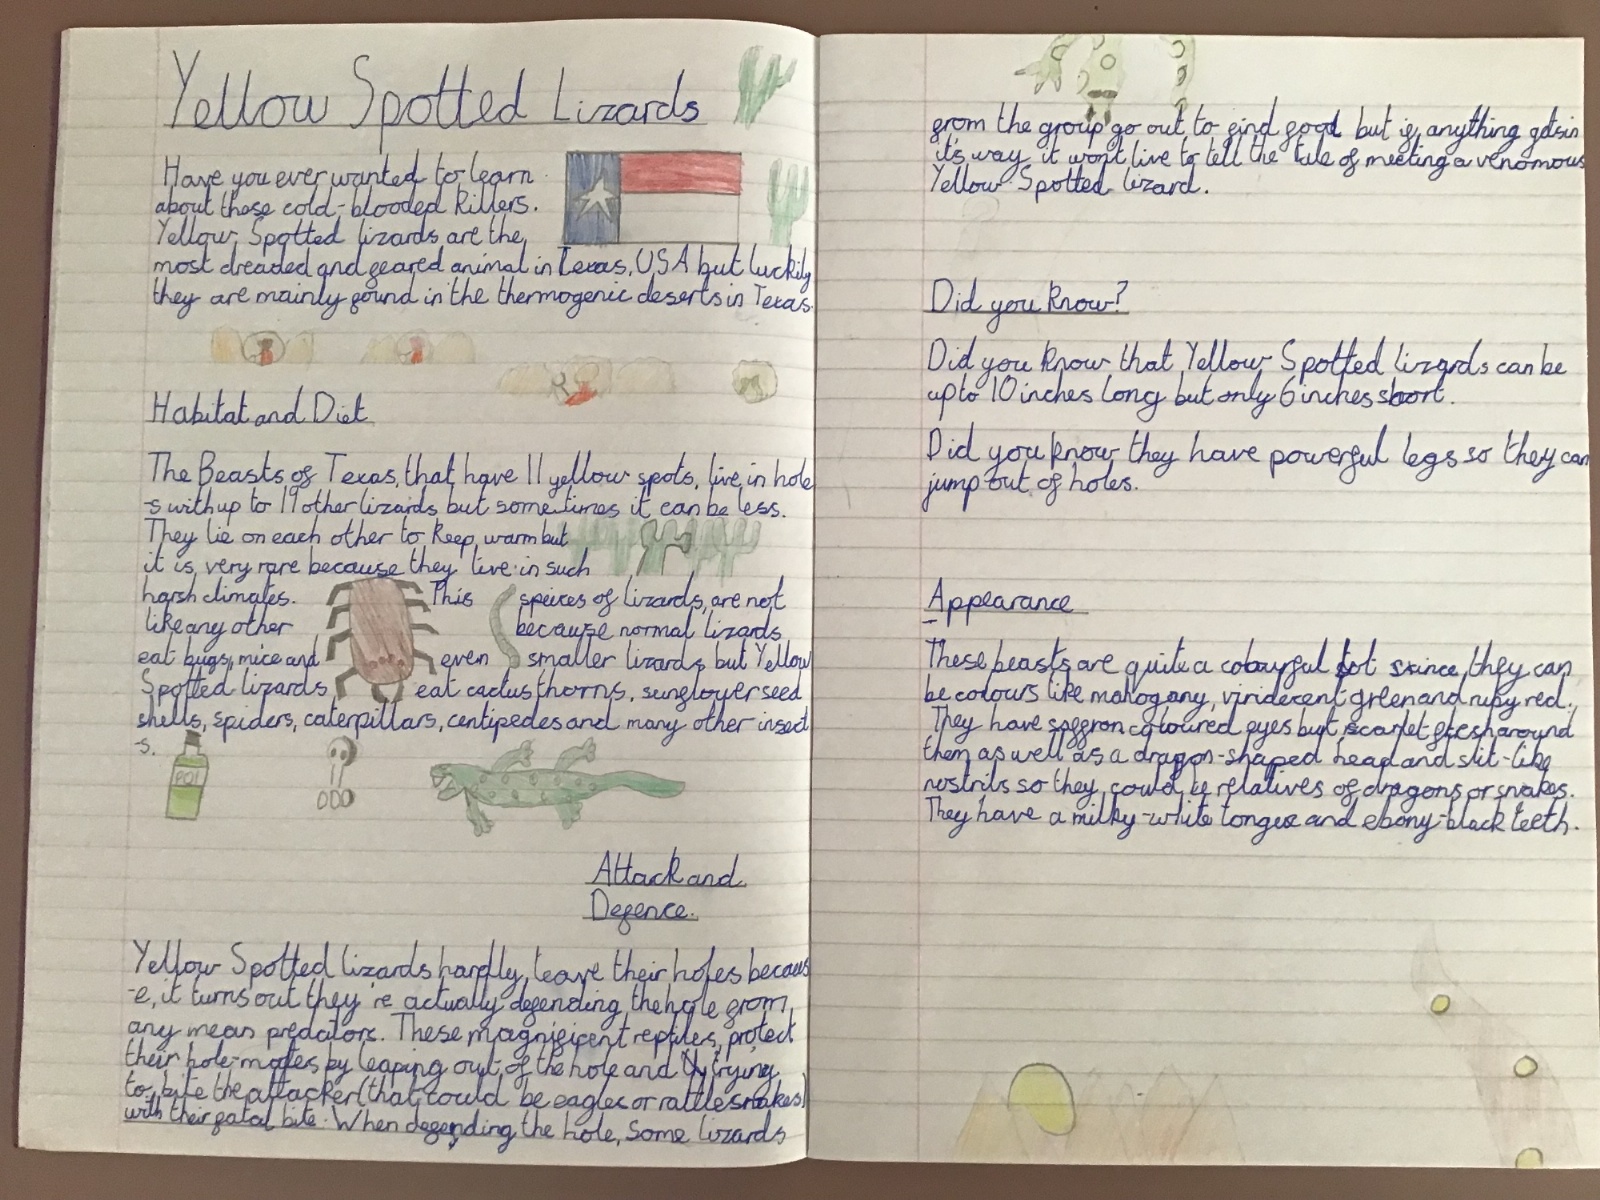 Yellow Spotted Lizards
Have you ever wanted to learn
about these cold-blooded killers.
Yellow Spotted lizards are the
most dreaded and feared animal in Texas, USA but luckily
they are mainly found in the thermogenic deserts in Texas.
Habitat and Diet
The Beasts of Texas, that have 11 yellow spots, live in hole
-s with up to 19 other lizards but sometimes it can be less.
They lie on each other to keep warm but
it is very rare because they live in such
harsh climates. This speices of lizards, are not
like any other because normal lizards
eat bugs, mice and even smaller lizards but Yellow
Spotted lizards eat cactus thorns, sunflower seed
shells, spiders, caterpillars, centipedes and many other insect
s.
POI
Attack and
Defence.
Yellow Spotted lizards hardly leave their holes becaus
-e, it turns out they're actually defending the hole from
any mean predators. These magnificent reptiles, protect
their hole-mates by leaping out of the hole and trying
to bite the attacker (that could be eagles or rattlesnakes)
with their fatal bite. When defending the hole, some lizards
from the group go out to find food but if anything gets in
it's way it wont live to tell the tale of meeting a venomous
Yellow Spotted lizard.
Did you know?
Did you know that Yellow Spotted lizards can be
up to 10 inches long but only 6 inches short.
Did you know they have powerful legs so they can
jump out of holes.
Appearance
These beasts are quite a colourful lot since they can
be colours like mahogany, viridecent green and ruby red.
They have saffron coloured eyes but scarlet flesh around
them as well as a dragon-shaped head and slit-like
nostrils so they could be relatives of dragons or snakes.
They have a milky-white tongue and ebony-black teeth.